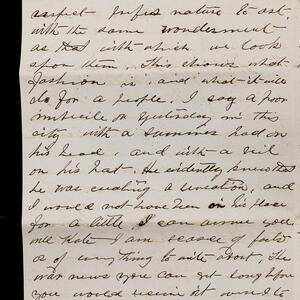 nature to ast
with the same wonderment
as that with which we look
upon them. This shows what
fashion is and what it will
do for a people. I say a poor
on yesterday in this
city with a summer had on
his head, and with a veil
on his hat. He evidently knew that
he was creating a sensation, and
I would not have been in his place
for a little. I can assure you
Kate I am scarce of facts
as of anything to write about. The
war news you can get long before
you would receive it